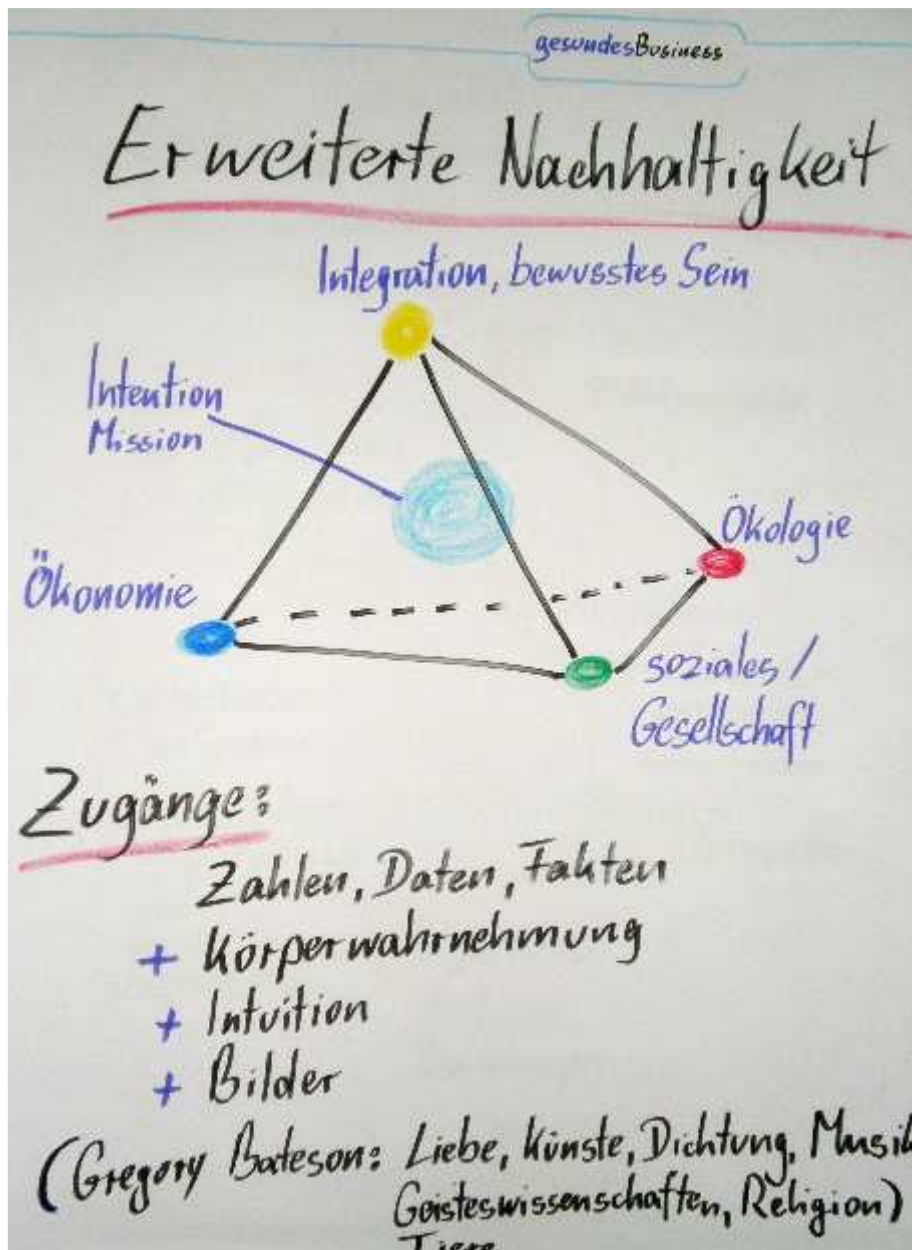 gesundesBusiness
Erweiterte Nachhaltigkeit
Integration, bewusstes Sein
Intention
Mission
Ökologie
Ökonomie
soziales /
Gesellschaft
Zugänge:
Zahlen, Daten, Fakten
+ Körperwahrnehmung
+ Intuition
+ Bilder
(Gregory Bateson: Liebe, Künste, Dichtung, Musik
Geisteswissenschaften, Religion)
Tiere